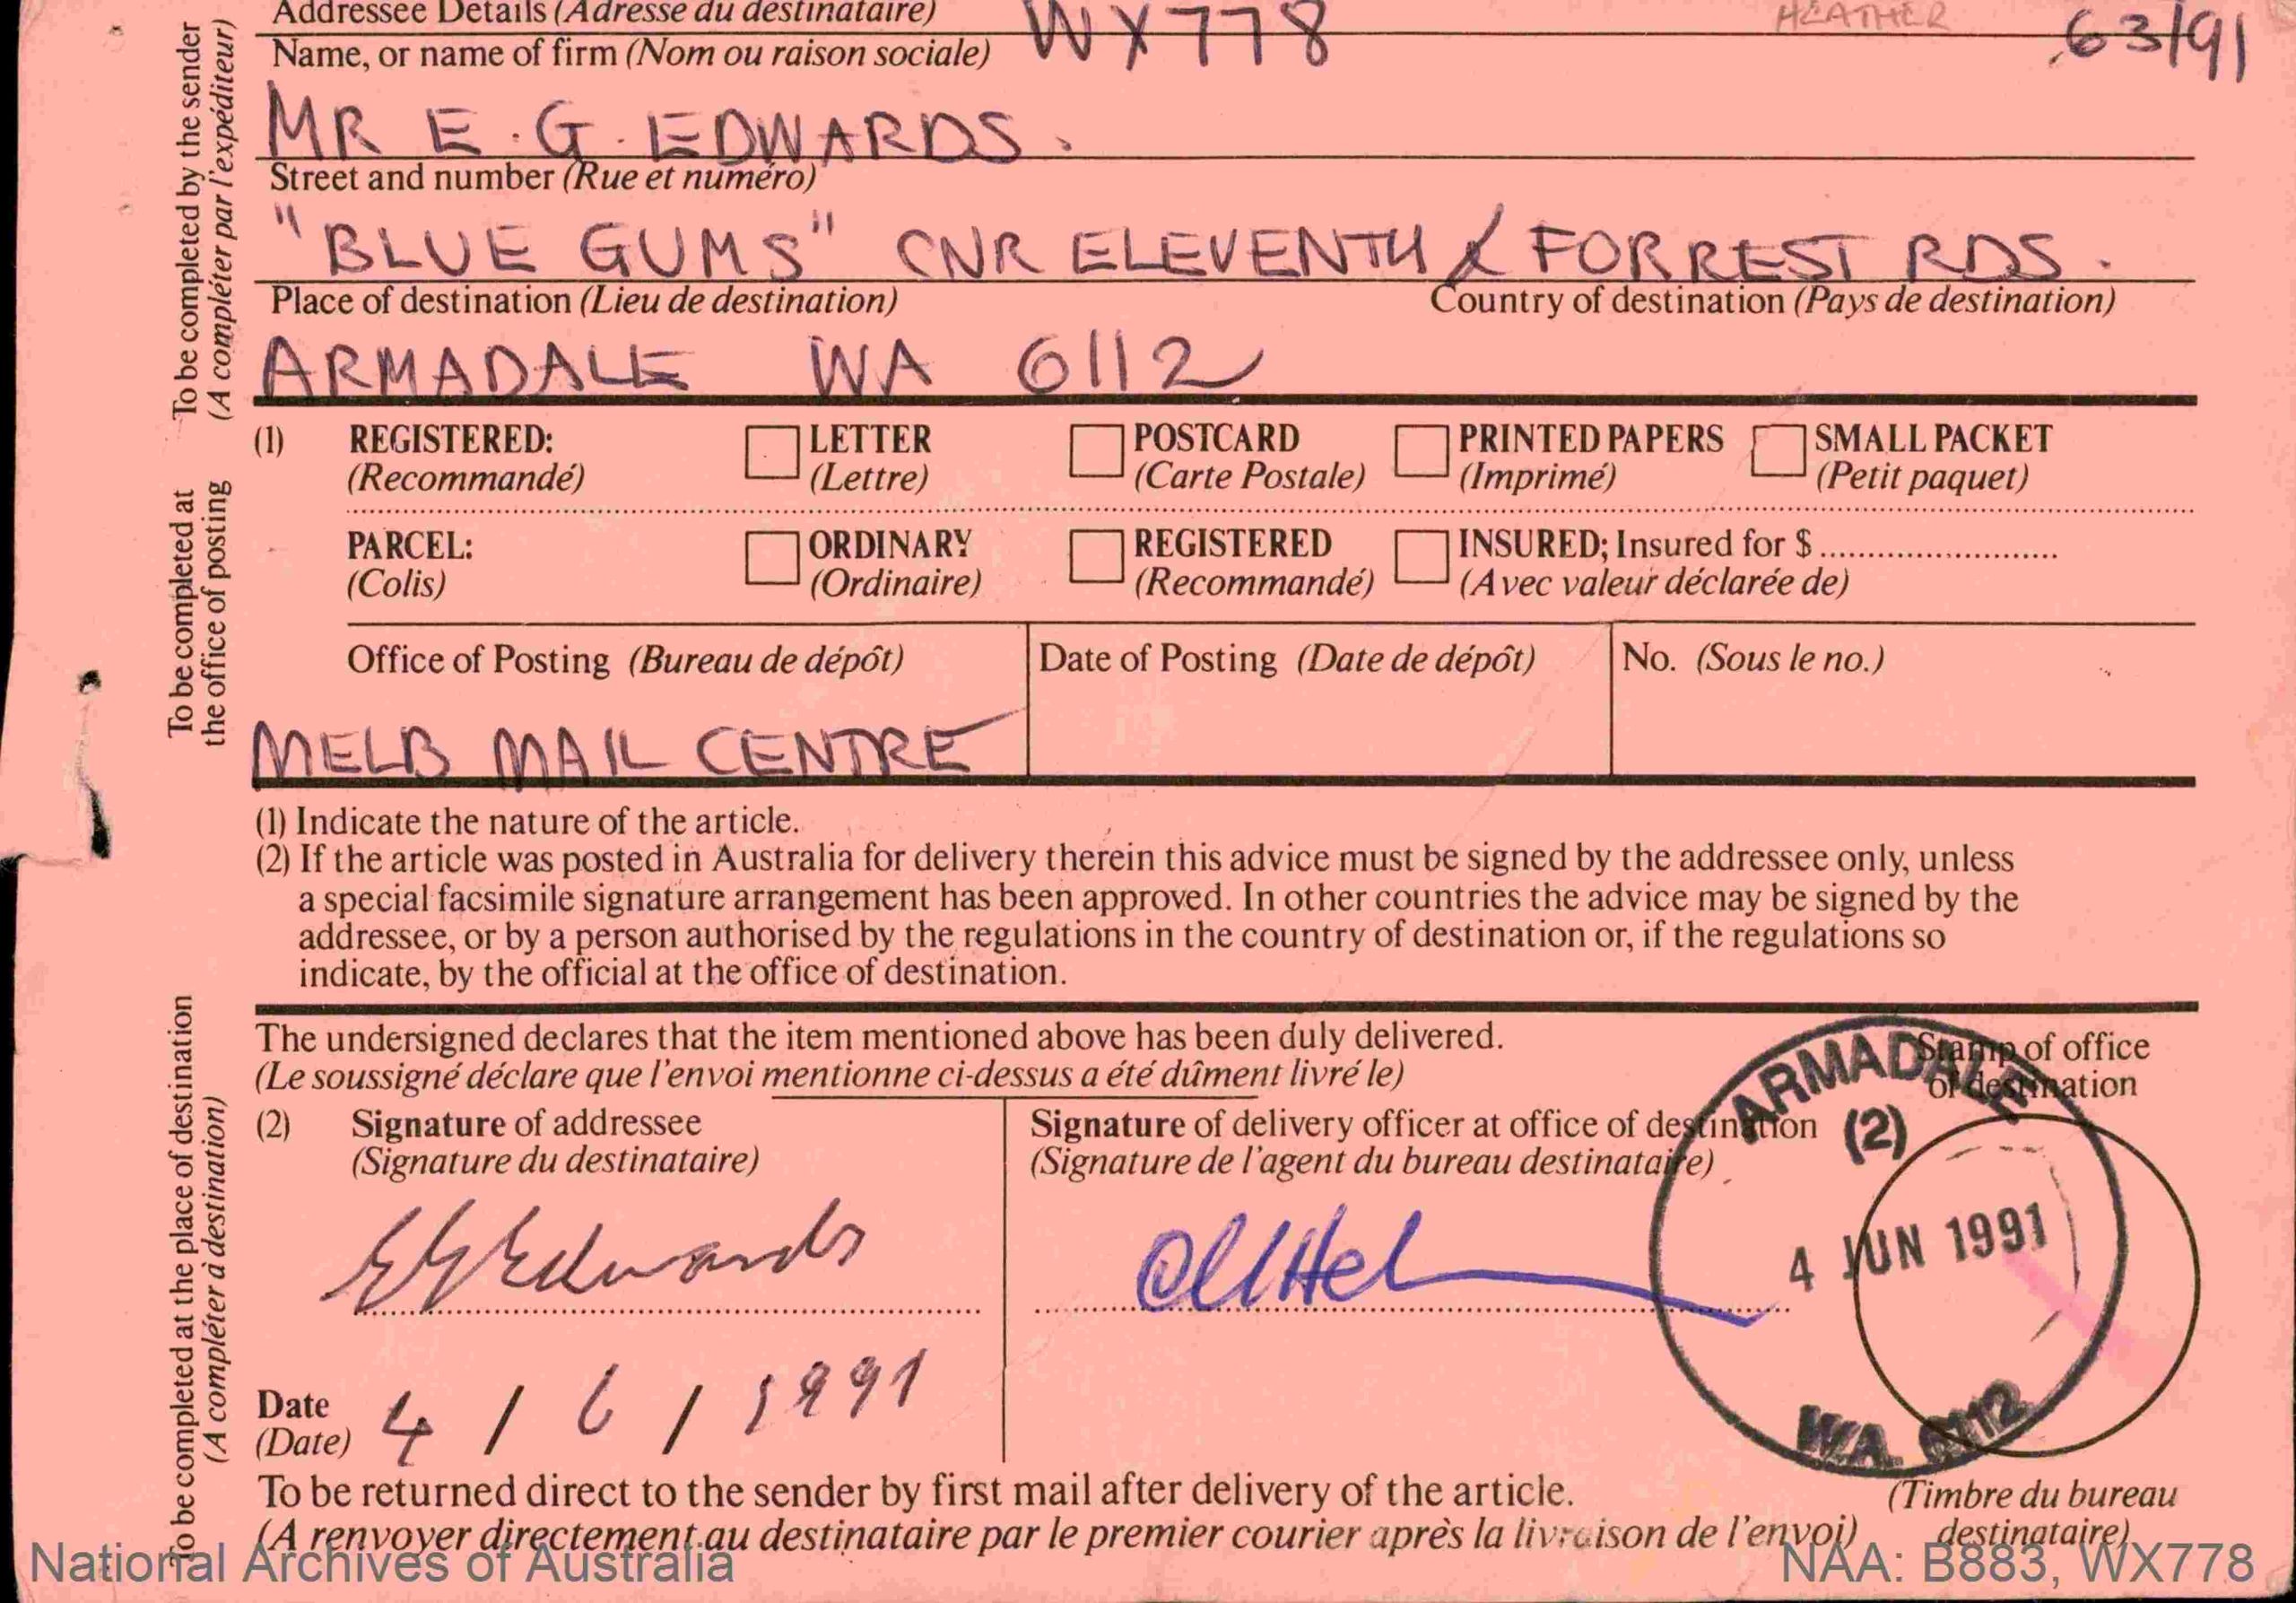 Addressee Details (Adresse du destinataire)
WX778
HEATHER
63/91
Name, or name of firm (Nom ou raison sociale)
MR E. G. EDWARDS.
Street and number (Rue et numéro)
"BLUE GUMS" CNR ELEVENTH & FORREST RDS.
Place of destination (Lieu de destination) Country of destination (Pays de destination)
ARMADALE WA 6112
To be completed by the sender
(A compléter par l'expéditeur)
(1) REGISTERED: LETTER POSTCARD PRINTED PAPERS SMALL PACKET
(Recommandé) (Lettre) (Carte Postale) (Imprimé) (Petit paquet)
PARCEL: ORDINARY REGISTERED INSURED; Insured for $
(Colis) (Ordinaire) (Recommandé) (Avec valeur déclarée de)
Office of Posting (Bureau de dépôt) Date of Posting (Date de dépôt) No. (Sous le no.)
MELB MAIL CENTRE
To be completed at
the office of posting
(1) Indicate the nature of the article.
(2) If the article was posted in Australia for delivery therein this advice must be signed by the addressee only, unless
a special facsimile signature arrangement has been approved. In other countries the advice may be signed by the
addressee, or by a person authorised by the regulations in the country of destination or, if the regulations so
indicate, by the official at the office of destination.
The undersigned declares that the item mentioned above has been duly delivered.
(Le soussigné déclare que l'envoi mentionne ci-dessus a été dûment livré le)
Stamp of office
of destination
(2) Signature of addressee Signature of delivery officer at office of destination
(Signature du destinataire) (Signature de l'agent du bureau destinataire)
EGEdwards
ARMADALE
(2)
4 JUN 1991
WA 6112
Date 4 / 6 / 1991
(Date)
To be completed at the place of destination
(A compléter à destination)
To be returned direct to the sender by first mail after delivery of the article.
(A renvoyer directement au destinataire par le premier courier après la livraison de l'envoi)
(Timbre du bureau
destinataire)
National Archives of Australia NAA: B883, WX778